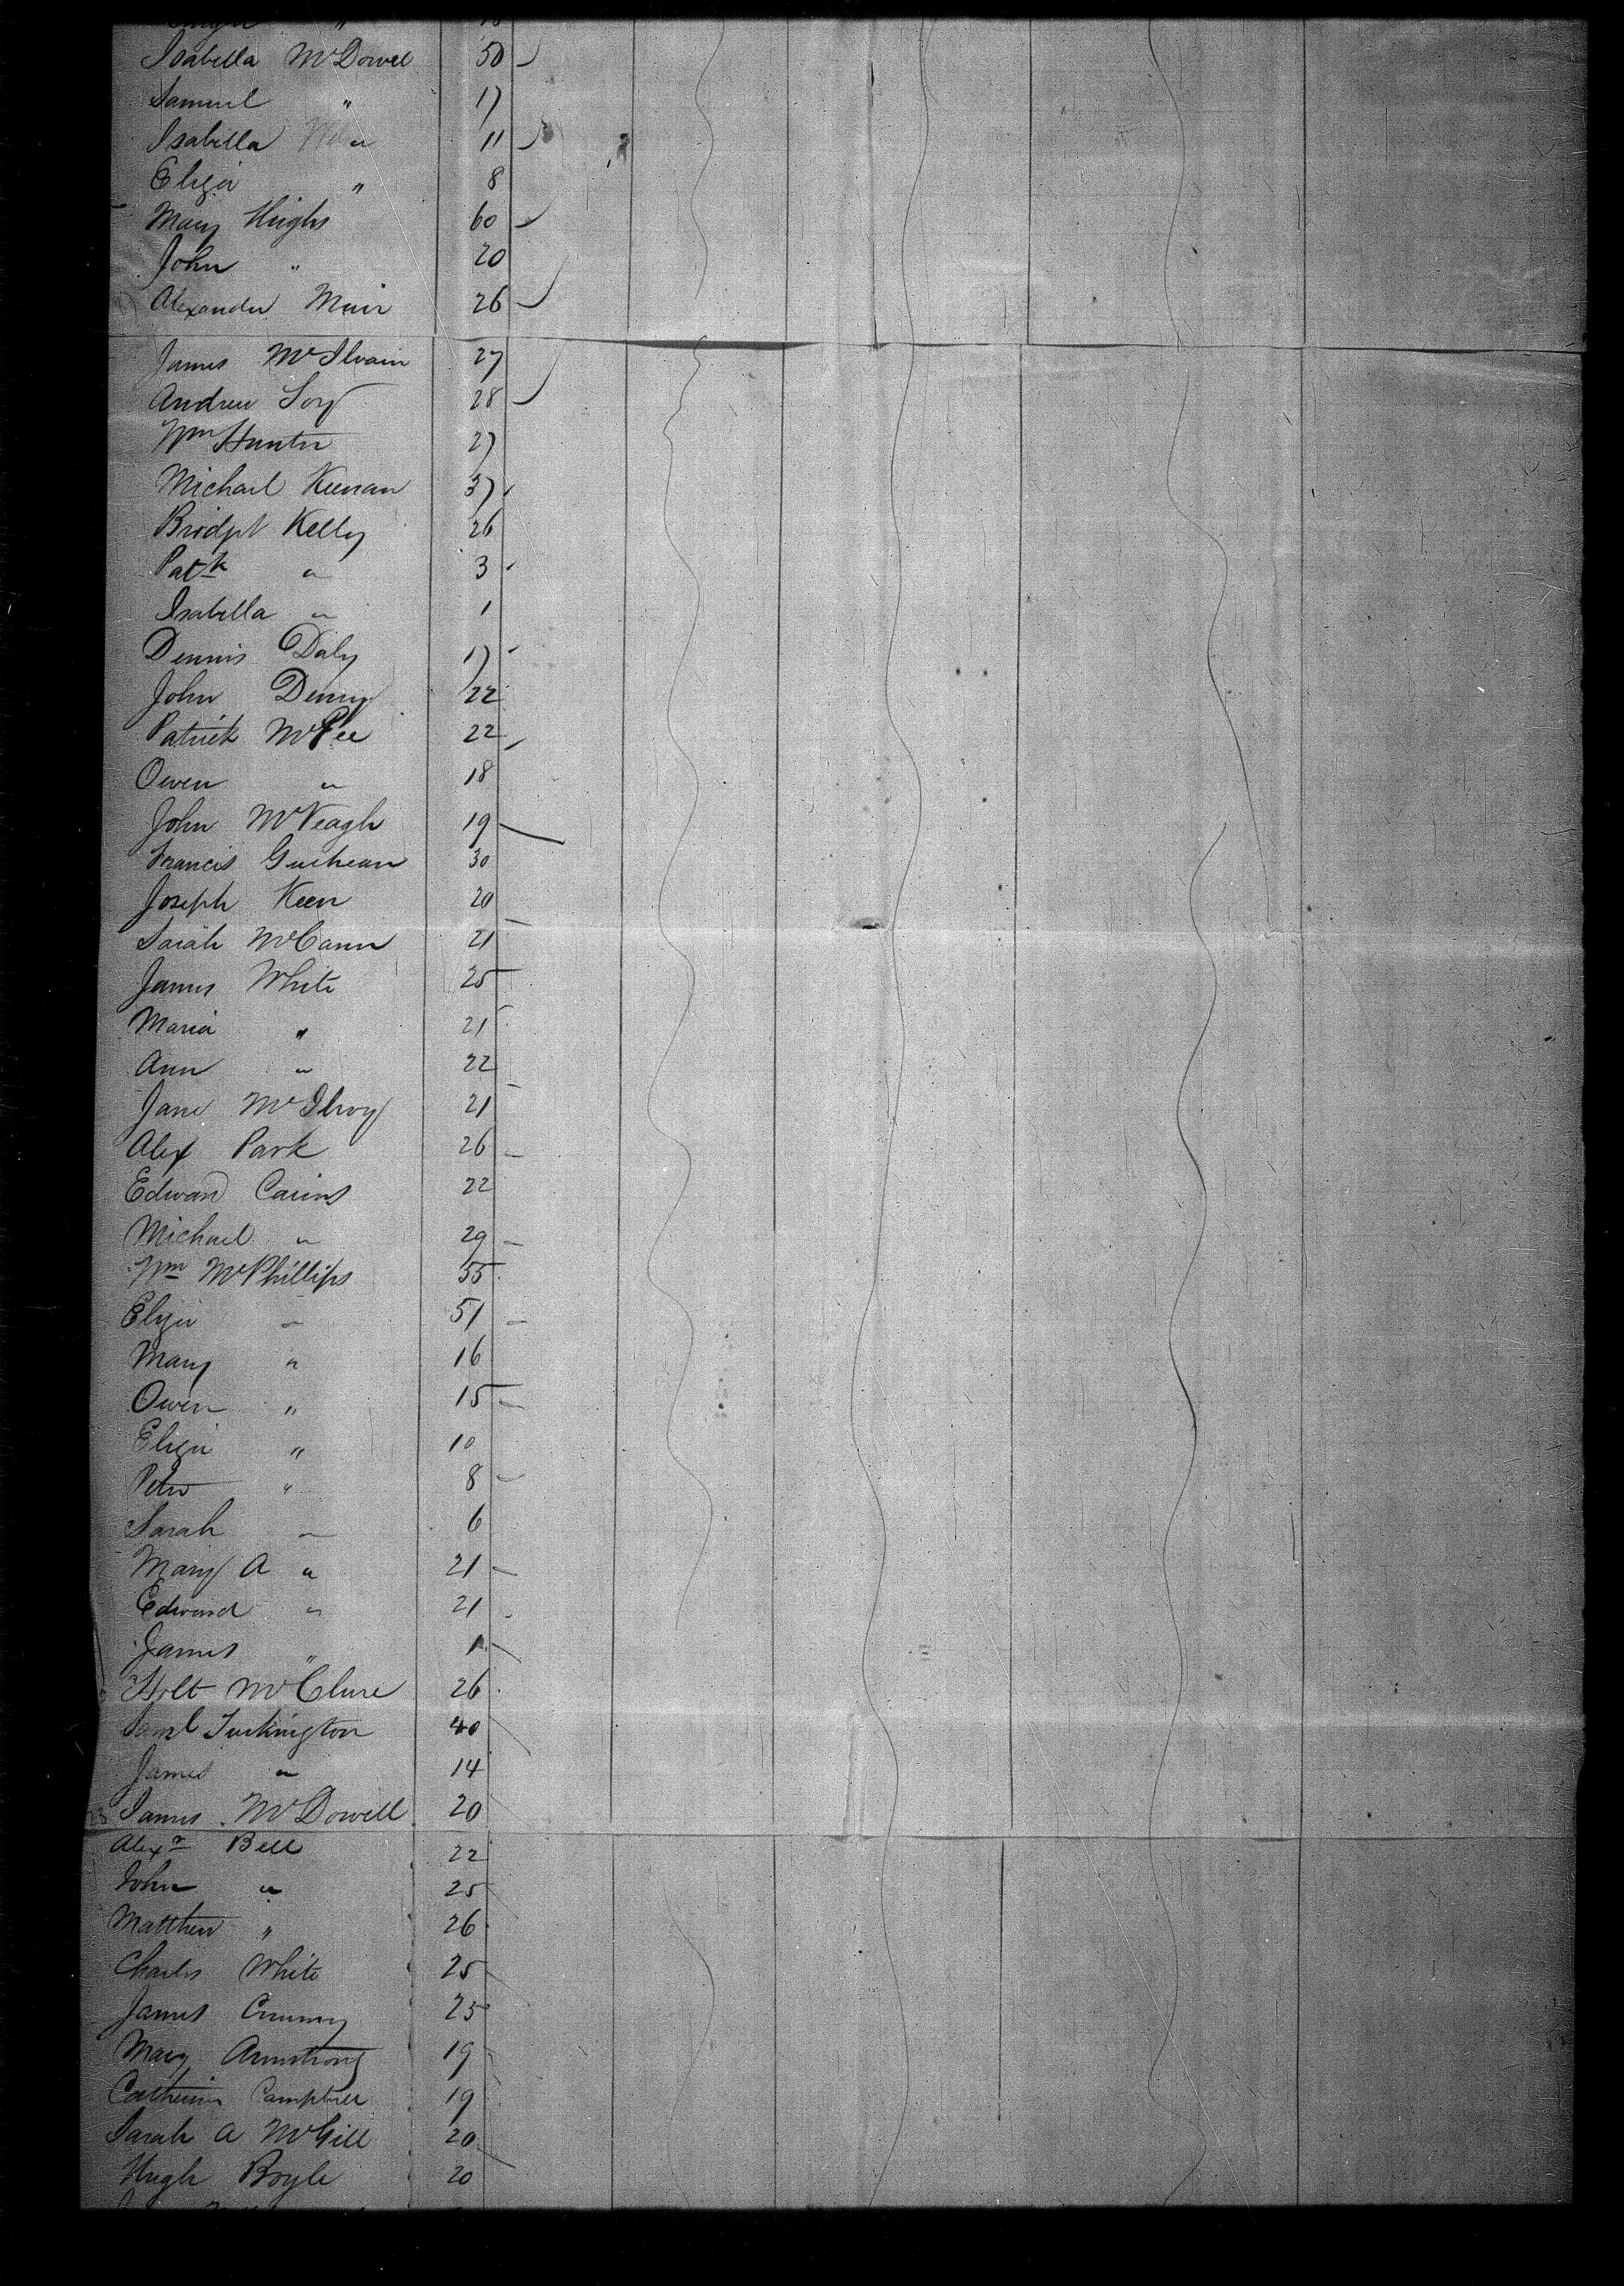 Isabella McDowel 50
Samuel " 17
Isabella " 11
Eliza " 8
Mary Hughs 60
John " 20
Alexander Muir 26
James McIlvain 27
Andrew 28
Wm Hunter 27
Michael Keenan 37
Bridget Kelly 26
Patk " 3
Isabella " 1
Dennis Daly 17
John Denny 22
Patrick 22
Owen " 18
John McVeagh 19
Francis 30
Joseph Keen 20
Sarah McCann 21
James White 25
Maria " 21
Ann " 22
Jane McIlroy 21
Alex Park 26
Edward Cairns 22
Michael " 29
Wm McPhillips 55
Eliza " 51
Mary " 16
Owen " 15
Eliza " 10
Peter " 8
Sarah " 6
Mary A " 21
Edward " 21
James " 1
McClure 26
Saml Turkington 40
James " 14
James McDowell 20
Alexr Bell 22
John " 25
Matthew " 26
Charles White 25
James Crummy 25
Mary Armstrong 19
Catherine Campbell 19
Sarah A McGill 20
Hugh Boyle 20